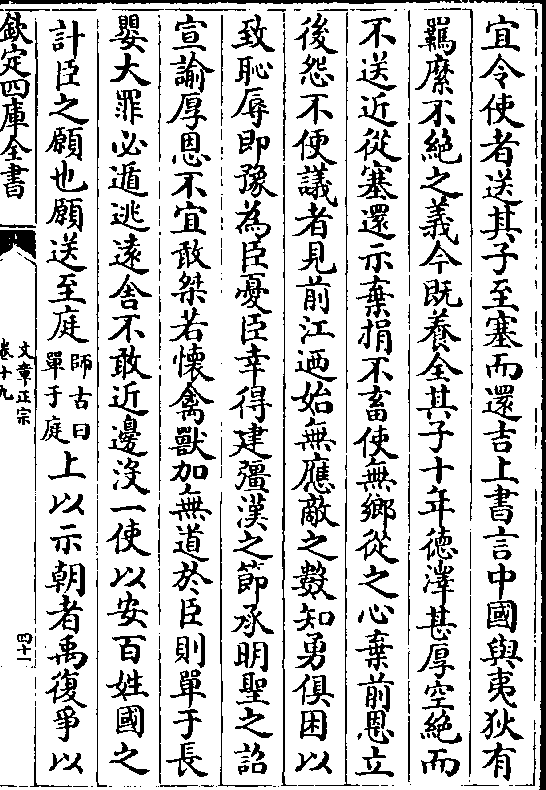 宜令使者送其子至塞而還吉上書言中國與夷狄有
羈縻不絶之義今既養全其子十年德澤甚厚空絶而
不送近從塞還示棄捐不畜使無鄉從之心棄前恩立
後怨不便議者見前江迺始無應敵之數知勇俱困以
致恥辱即豫為臣憂臣幸得建彊漢之節承明聖之詔
宣諭厚恩不宜敢桀若懷禽獸加無道於臣則單于長
嬰大罪必遁逃遠舍不敢近邊没一使以安百姓國之
計臣之願也願送至庭師古曰單于庭上以示朝者禹復爭以
欽定四庫全書
文章正宗
卷十九
四十一